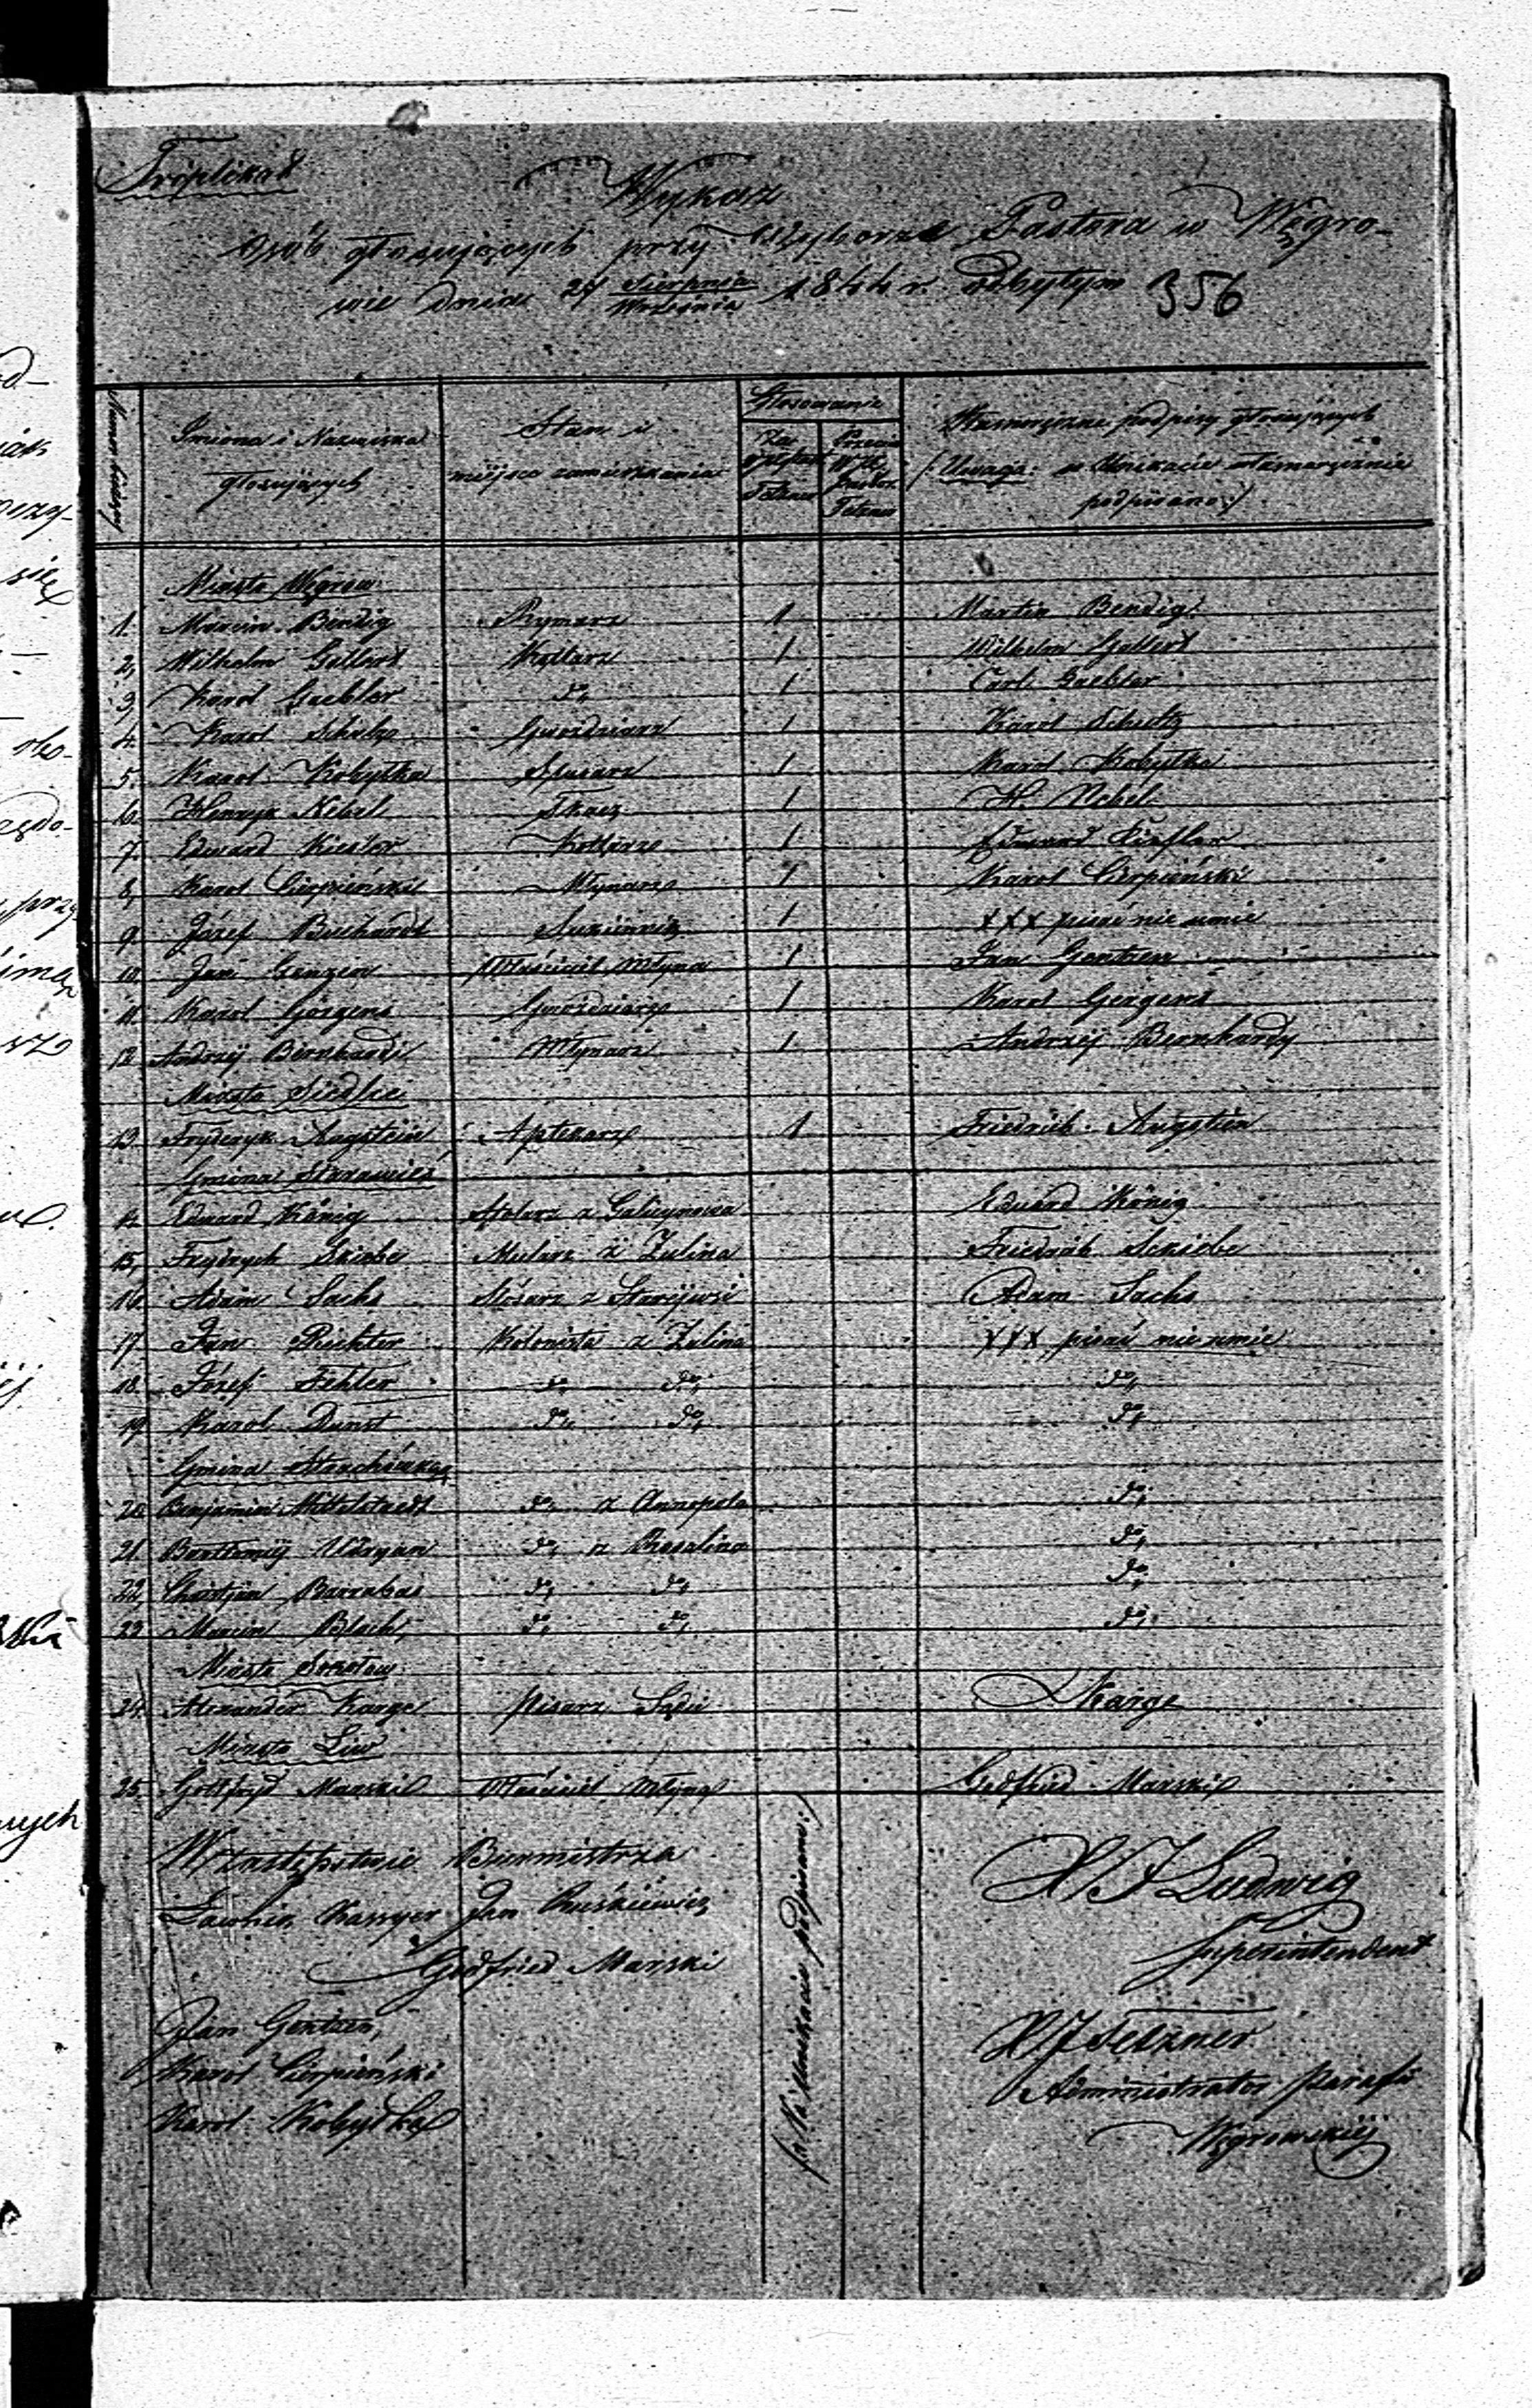 Triplikat
Wykaz
osób głosujących przy Wyborze Pastora w Węgro-
wie dnia 24 Sierpnia / Września 1844 r. odbytym 356
Numer bieżący
Imiona i Nazwiska głosujących
Stan i miejsce zamieszkania
Głosowanie
Za Tetzner
Przeciw Tetzner
Własnoręczne podpisy głosujących
/: Uwaga: w Unikacie własnoręcznie podpisano :/
Miasto Węgrów
1. Marcin Bendig Rymarz 1 Martin Bendig
2. Wilhelm Gellert Kotlarz 1 Wilhelm Gellert
3. Karol Gaebler do 1 Carl Gaebler
4. Karol Schulz Gwoździarz 1 Karol Schultz
5. Karol Kobyłka Slusarz 1 Karol Kobyłka
6. Henryk Nebel Tkacz 1 H. Nebel
7. Edward Kiesler Kotlarz 1 Edward
8. Karol Cierpieński Młynarz 1 Karol Cierpieński
9. Józef Buchardt Sukiennik 1 XXX pisać nie umie
10. Jan Genzen Właściciel Młyna 1 Jan Gentzen
11. Karol Görgens Gwoździarz 1 Karol Gergens
12. Andrzej Bernhardi Młynarz 1 Andrzej Bernhardy
Miasto Siedlce
13. Fryderyk Augstein Aptekarz 1 Friedrich Augstien
Gmina
14. Edward König Stolarz z Edward König
15. Frydrych Mularz z Zulina Friedrich
16. Adam Sachs z Starejwsi Adam Sachs
17. Jan Richter Kolonista z Zulina XXX pisać nie umie
18. Józef Fehler do do do
19. Karol Dunst do do do
Gmina
20. Benjamin Mittelstaedt do z Annopola do
21. Bartłomiej do z Rosalina do
22. Christjan Barrabas do do do
23. Marcin Bloch do do do
Miasto Sokołow
24. Alexander Karge Pisarz Sądu Karge
Miasto Liw
25. Gottfryd Marski Właściciel Młyna Godfried Marski
W zastępstwie Burmistrza
Ławnik Kassyer Jan
Godfried Marski
Jan Gentzen
Karol Cierpieński
Karol Kobyłka
/: Na Unikacie podpisani :/
X J Ludwig
Superintendent
X J Tetzner
Administrator Parafii
Węgrowskiej